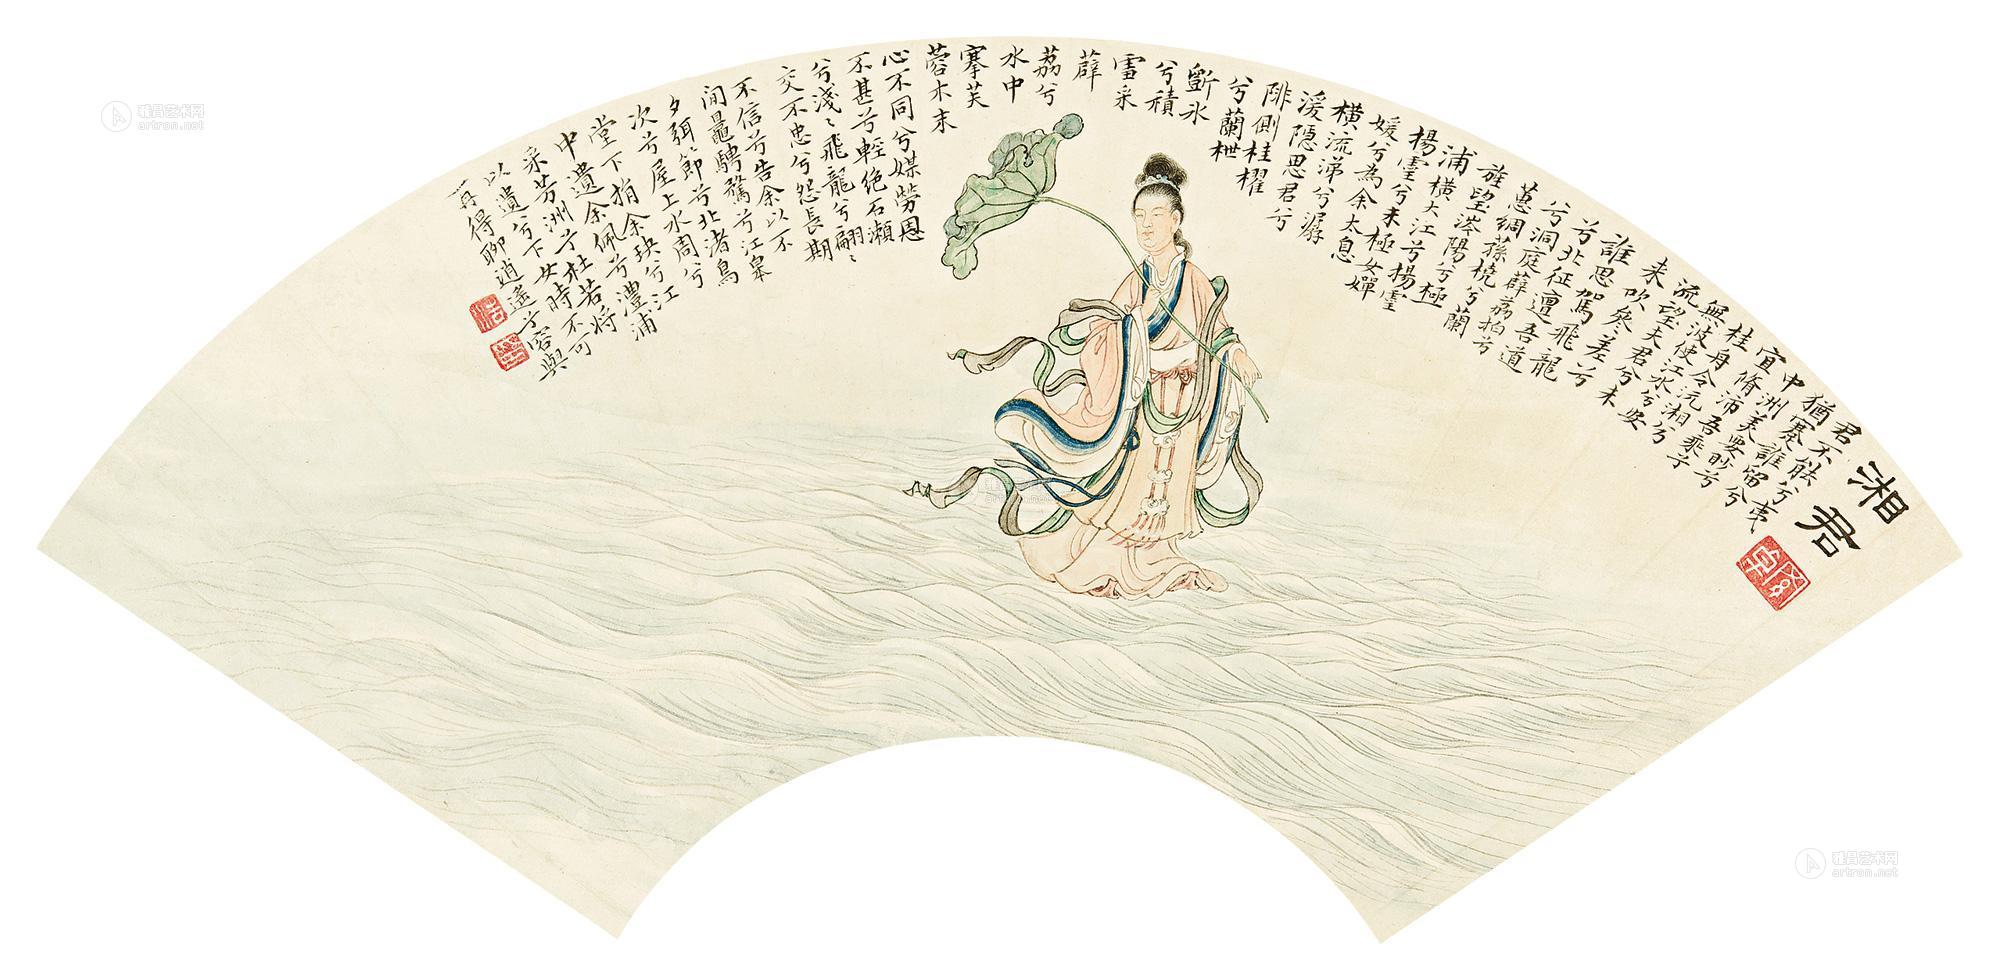 湘君
君不能兮夷
猶蹇誰留兮
中洲美要眇兮
宜脩沛吾乘兮
桂舟令沅湘兮
無波使江水兮安
流望夫君兮未
來吹參差兮
誰思駕飛龍
兮北征邅吾道
兮洞庭薜荔拍兮
蕙綢蓀橈兮蘭
旌望涔陽兮極
浦橫大江兮楊靈
楊靈兮未極女嬋
媛兮為余太息
橫流涕兮潺
湲隱思君兮
陫側桂櫂
兮蘭枻
斲冰
兮積
雪采
薜
荔兮
水中
搴芙
蓉木末
心不同兮媒勞恩
不甚兮輕絕石瀨
兮淺〻飛龍兮翩〻
交不忠兮怨長期
不信兮告余以不
閒鼂騁騖兮江皋
夕弭節兮北渚鳥
次兮屋上水周兮
堂下捐余玦兮江
中遺余佩兮澧浦
采芳洲兮杜若將
以遺兮下女時不可
再得聊逍遙兮容與
雅昌艺术网
artron.net
雅昌艺术网
artron.net